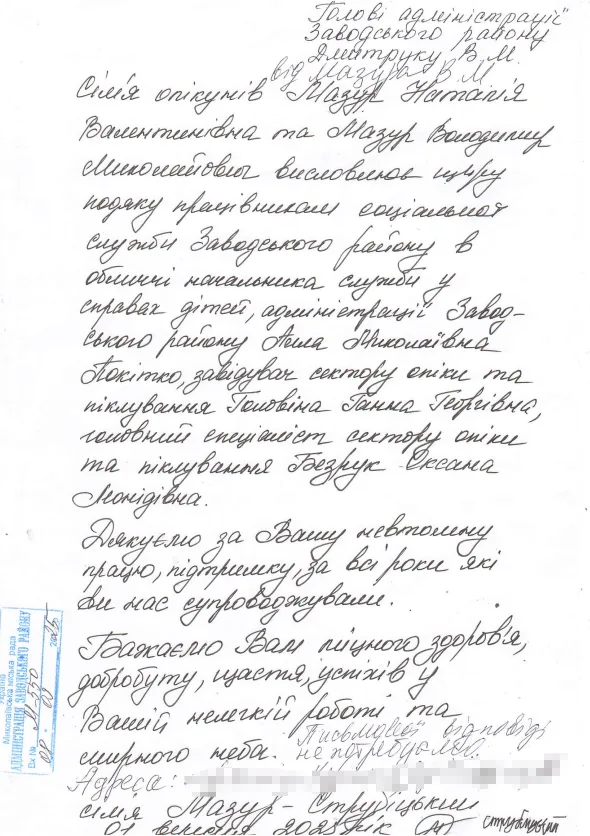 Голові адміністрації
Заводського району
Дмитруку В.М.
від Мазура В.М.
Сім'я опікунів Мазур Наталія
Валентинівна та Мазур Володимир
Миколайович висловлює щиру
подяку працівникам соціальної
служби Заводського району в
обличчі начальника служби у
справах дітей, адміністрації Завод-
ського району Алла Миколаївна
Покітко, завідувач сектору опіки та
піклування Головіна Ганна Георгівна,
головний спеціаліст сектору опіки
та піклування Безрук Оксана
Лонідівна.
Дякуємо за Вашу невтомну
працю, підтримку, за всі роки які
ви нас супроводжували.
Бажаємо Вам міцного здоров'я,
добробуту, щастя, успіхів у
Вашій нелегкій роботі та
мирного неба. Письмової відповіді
не потребуємо.
Адреса:
сім'я Мазур-Струбіцький
01 вересня 2025 рік
Україна
Миколаївська міська рада
АДМІНІСТРАЦІЯ ЗАВОДСЬКОГО РАЙОНУ
Вх №
08. 09 2025